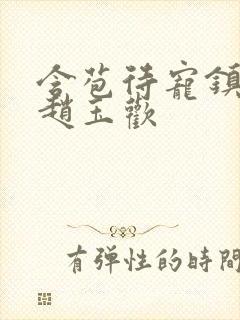 含苞待寵鎮
趙玉歡
有弹性的時間